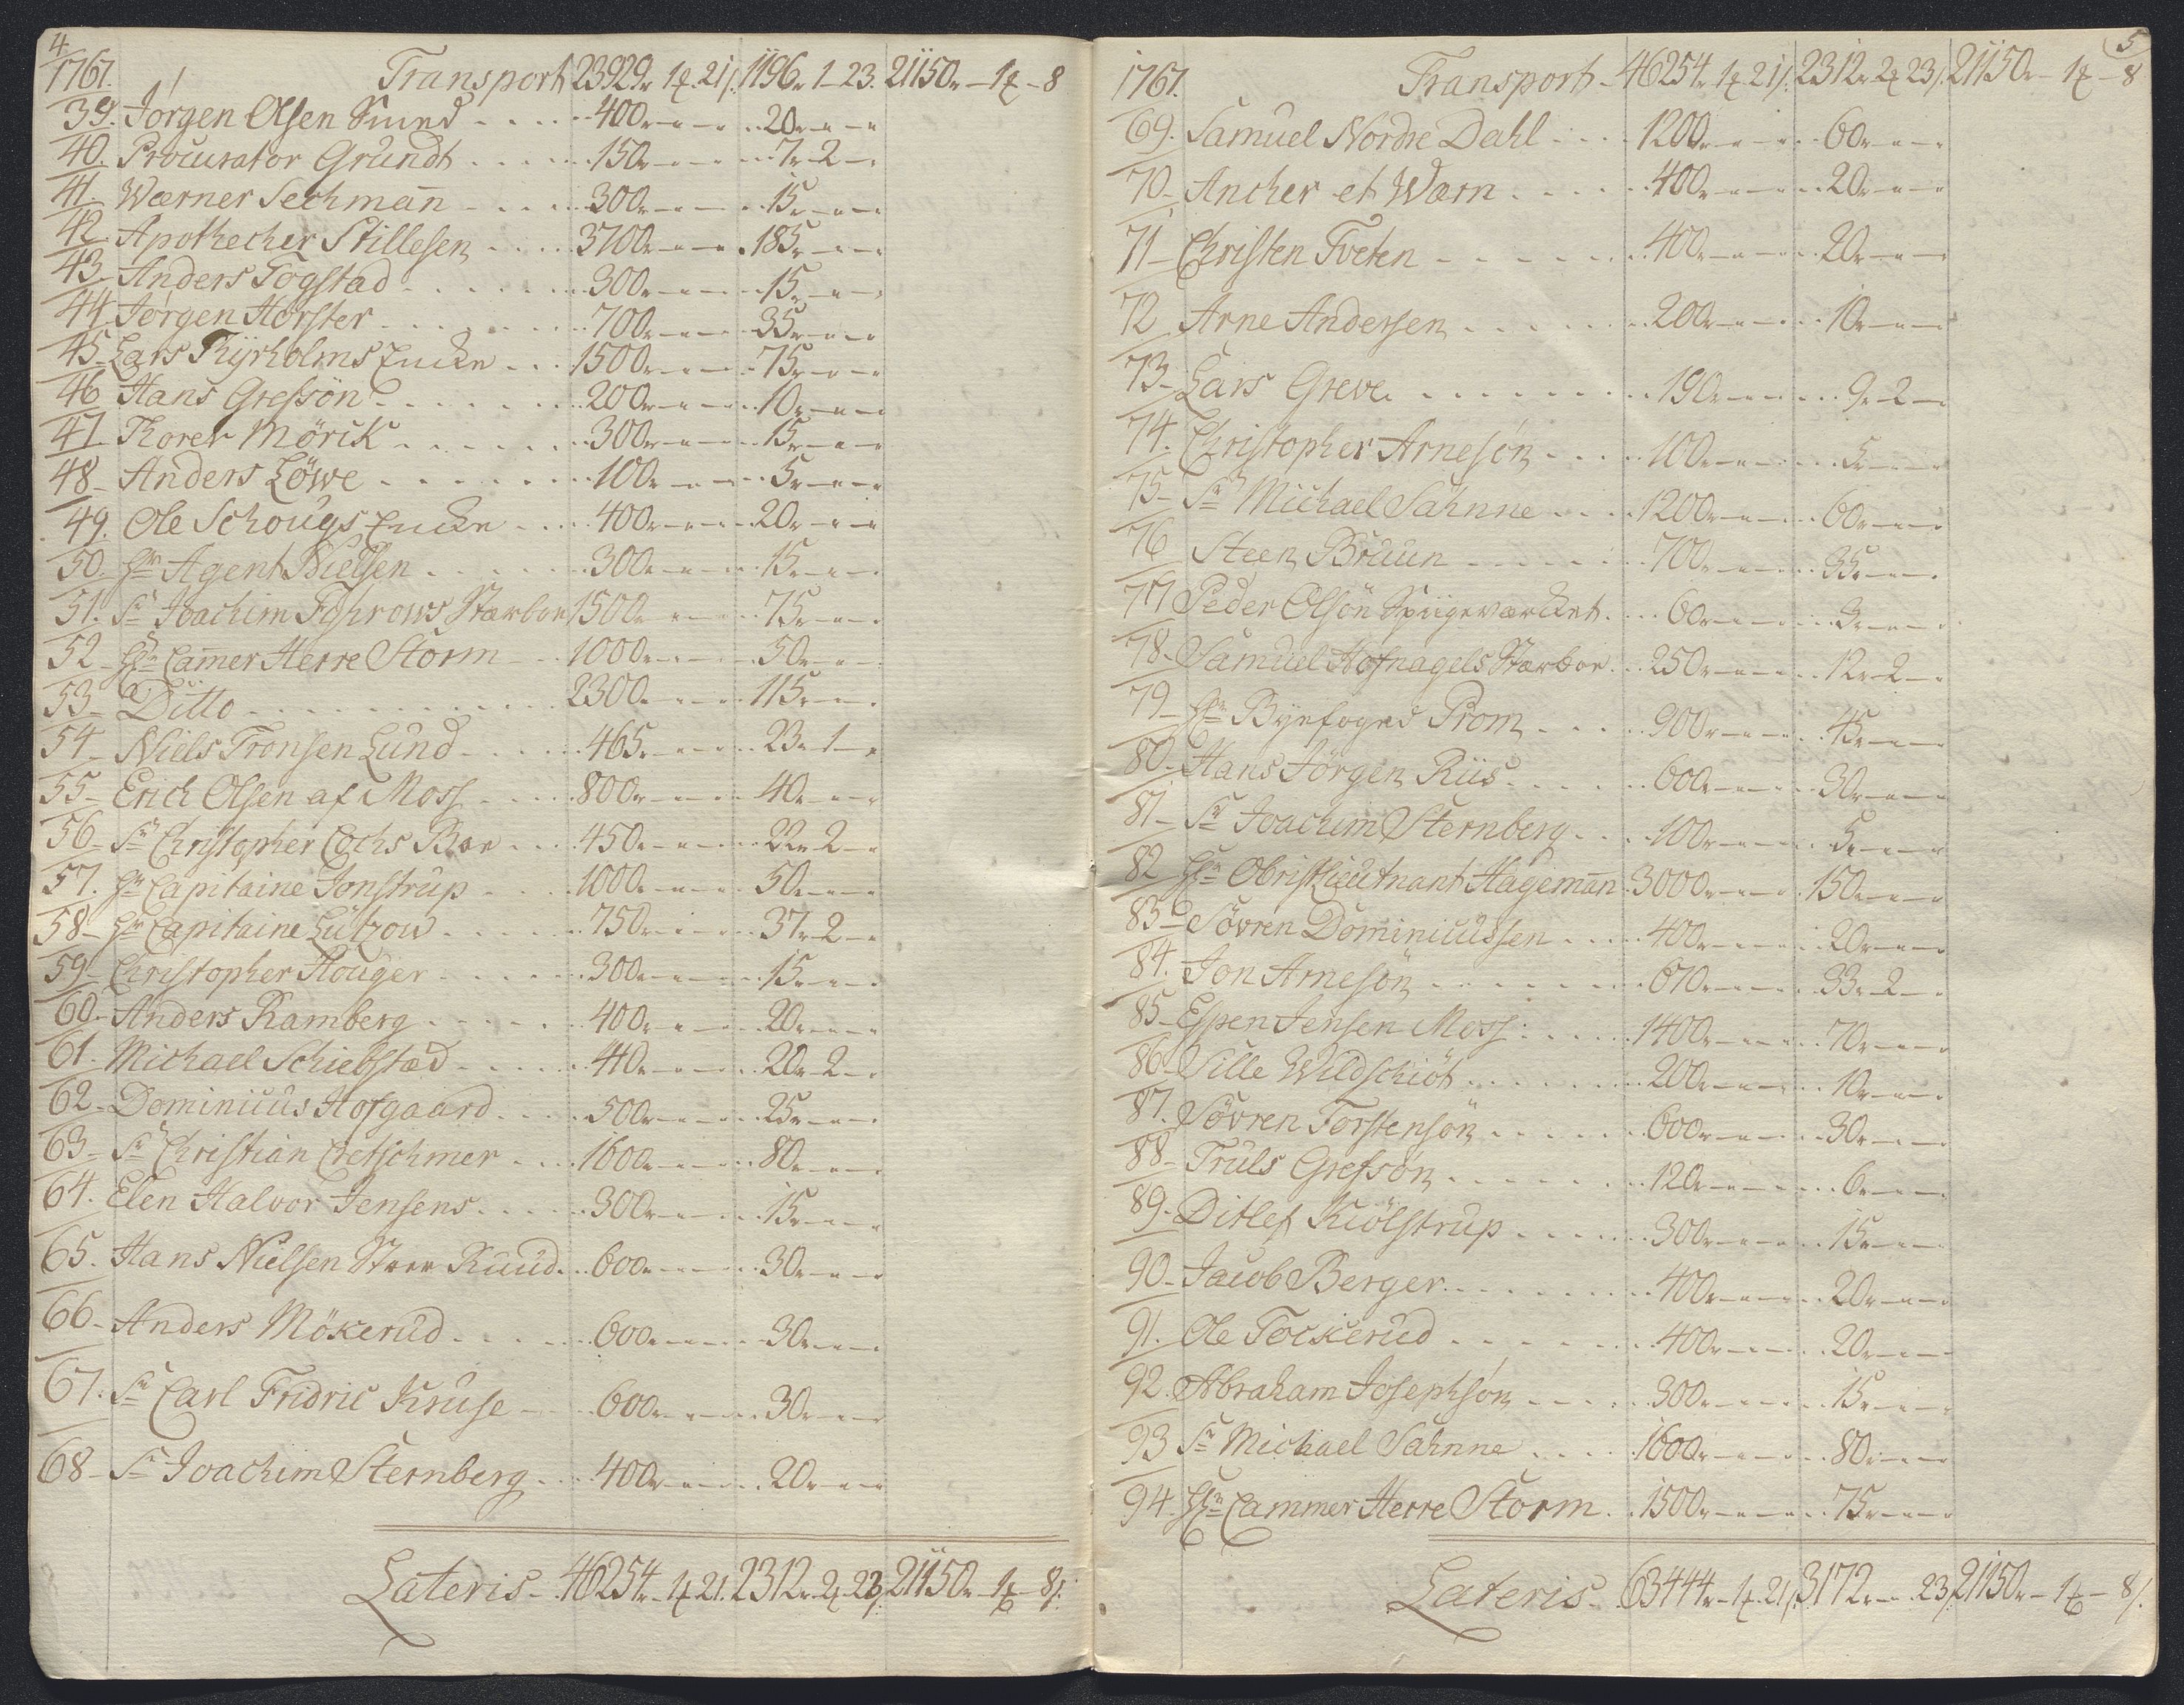 4
1767. Transport 23929r 1ƭ. 21/. 1196r 1 – 23. 21150r – 1ƭ – 8
39. Jørgen Olsen Smed . . . 400r – „ – „ . . 20r – „ – „
40. Procurator Grundt . . . 150r – „ – „ . . 7r – 2 – „
41. Wærner Sechman̄ . . . 300r – „ – „ . . 15r – „ – „
42. Apothecher Stillesen . . . 3700r – „ – „ . 185r – „ – „
43. Anders Togstad . . . 300r – „ – „ . . 15r – „ – „
44 Jørgen Horster . . . 700r – „ – „ . . 35r – „ – „
45. Lars Thÿrholms Encke . . . 1500r – „ – „ . . 75r – „ – „
46 Hans Grefsön . . . 200r – „ – „ . . 10r – „ – „
47. Thorer Mörik . . . 300r – „ – „ . . 15r – „ – „
48 – Anders Löwe . . . 100r – „ – „ . . 5r – „ – „
49. Ole Schougs Encke . . . 400r – „ – „ . . 20r – „ – „
50. Hr Agent Nielsen . . . 300r – „ – „ . . 15r – „ – „
51. Sr Joachim Fohrows Stærboe 1500r – „ – „ . . 75r – „ – „
52 – Hr Cam̄er Herre Storm . . . 1000r – „ – „ . . 50r – „ – „
53 – Ditto . . . 2300r – „ – „ . . 115r – „ – „
54 – Niels Tronsen Lund . . . 465r – „ – „ . . 23r – 1 – „
55 – Erich Olsen af Moss . . . 800r – „ – „ . . 40r – „ – „
56 – Sr Christopher Cochs Boe . . . 450r – „ – „ . . 22r – 2 – „
57. Hr Capitaine Jonstrup . . . 1000r – „ – „ . . 50r – „ – „
58 – Hr Capitaine Lützow . . . 750r – „ – „ . . 37r – 2 – „
59 – Christopher Houger . . . 300r – „ – „ . . 15r – „ – „
60 – Anders Ramberg . . . 400r – „ – „ . . 20r – „ – „
61. Michael Schiebstæd . . . 410r – „ – „ . . 20r – 2 – „
62 – Dominicus Hofgaard . . . 500r – „ – „ . . 25r – „ – „
63 – Sr Christian Cretschmer . . . 1600r – „ – „ . . 80r – „ – „
64. Elen Halvor Jensens . . . 300r – „ – „ . . 15r – „ – „
65. Hans Nielsen Ruud . . 600r – „ – „ . . 30r – „ – „
66 – Anders Mökerud . . . 600r – „ – „ . . 30r – „ – „
67. Sr Carl Fridric Kruse . . . 600r – „ – „ . . 30r – „ – „
68 – Sr Joachim Sternberg . . . 400r – „ – „ . . 20r – „ – „
Lateris – 46254r – 1ƭ 21. 2312r – 2ƭ 23/. 21150r – 1ƭ – 8/.
5
1767. Transport – 46254r 1ƭ 21/. 2312r 2ƭ 23/. 21150r – 1ƭ – 8
69. Samuel Nordre Dahl . . . 1200r – „ – „ . . 60r – „ – „
70 – Ancher et Wærn . . . 400r – „ – „ . . 20r – „ – „
71 – Christen Tveten . . . 400r – „ – „ . . 20r – „ – „
72 Arne Andersen . . . 200r – „ – „ . . 10r – „ – „
73 – Lars Greve . . . 190r – „ – „ . . 9r – 2 – „
74. Christopher Arnesøn . . . 100r – „ – „ . . 5r – „ – „
75 – Sr Michael Sahnne . . . 1200r – „ – „ . . 60r – „ – „
76 Steen Bruun . . . 700r – „ – „ . . 35r – „ – „
77 Peder Olsön Spiigerværcket . . . 60r – „ – „ . . 3r – „ – „
78. Samuel Hofnagels Stærboe . . 250r – „ – „ . . 12r – 2 – „
79 – Hr Byefoged Prom . . . 900r – „ – „ . . 45r – „ – „
80. Hans Jörgen Riis . . . 600r – „ – „ . . 30r – „ – „
81 – Sr Joachim Sternberg . . . 100r – „ – „ . . 5r – „ – „
82 Hr Obristlieutnant Hageman̄ . 3000r – „ – „ . 150r – „ – „
83 – Sövren Dominicussen . . . 400r – „ – „ . . 20r – „ – „
84. Jon Arnesön . . . 670r – „ – „ . . 33r – 2 – „
85 – Espen Jensen Moss . . . 1400r – „ – „ . . 70r – „ – „
86 – Sille Wildschiöt . . . 200r – „ – „ . . 10r – „ – „
87. Sövren Torstensön . . . 600r – „ – „ . . 30r – „ – „
88 – Truls Grefsön . . . 120r – „ – „ . . 6r – „ – „
89. Ditlef Kiölstrup . . . 300r – „ – „ . . 15r – „ – „
90 – Jacob Berger . . . 400r – „ – „ . . 20r – „ – „
91. Ole Tockerud . . . 400r – „ – „ . . 20r – „ – „
92. Abraham Josephsön . . . 300r – „ – „ . . 15r – „ – „
93 Sr Michael Sahnne . . . 1600r – „ – „ . . 80r – „ – „
94. Hr Cammer Herre Storm . . 1500r – „ – „ . . 75r – „ – „
Lateris – 63444r – 1ƭ. 21/. 3172r – „ 23/. 21150r – 1ƭ – 8/.